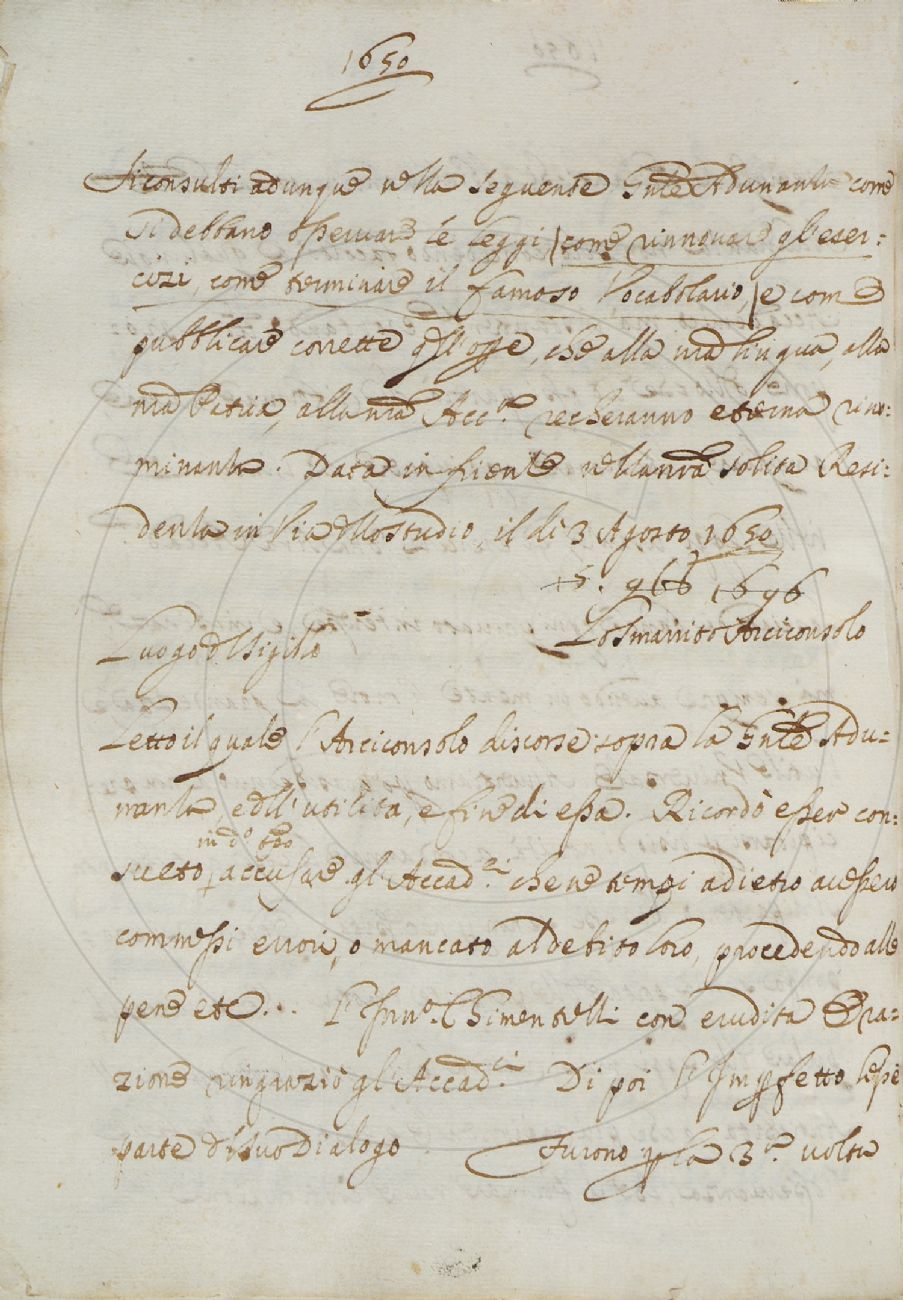 1650
Si consulti adunque nella seguente Gnle Adunanza come
si debbano osservare le leggi, come rinnovare gl'eser=
cizi, come terminare il famoso Vocabolario, e come
pubblicare corrette qll'opre, che alla nra lingua, alla
nra Patria, alla nra Accª. recheranno eterna rino=
minanza. Data in Firenze nella nra solita Resi=
denza in Via dllo Studio, il dì 3 Agosto 1650
1696
Lo Smarrito Arciconsolo
Luogo dl Sigillo
Letto il quale l'Arciconsolo discorse sopra la Gnle Adu=
nanza, e dll'utilità, e fine di essa. Ricordò esser con=
in dº
sueto accusare gl'Accad.ci che ne tempi adietro avessero
commessi errori, o mancato al debito loro, procedendo alle
pene etc... L'Innº. Chimentelli con erudita Ora=
zione ringraziò gl'Accad.ci Di poi l'Impfetto lesse
parte dl suo Dialogo Furono p la 3ª. volta